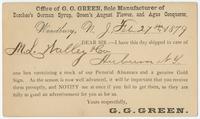 Office of G. G. GREEN, Sole Manufacturer of
Boschee's German Syrup, Green's August Flower, and Ague Conqueror,
Woodbury, N. J. Feb 27th 1879
DEAR SIR:—I have this day shipped in care of
Auburn N.Y.
one box containing a stock of our Pictorial Almanacs and a genuine Gold
Sign. As the season is now well advanced, it will be important that you receive
them promptly, and NOTIFY me at once if you fail to get them, as they are
fully as good an advertisement for you as for us.
Yours respectfully,
G. G. GREEN.